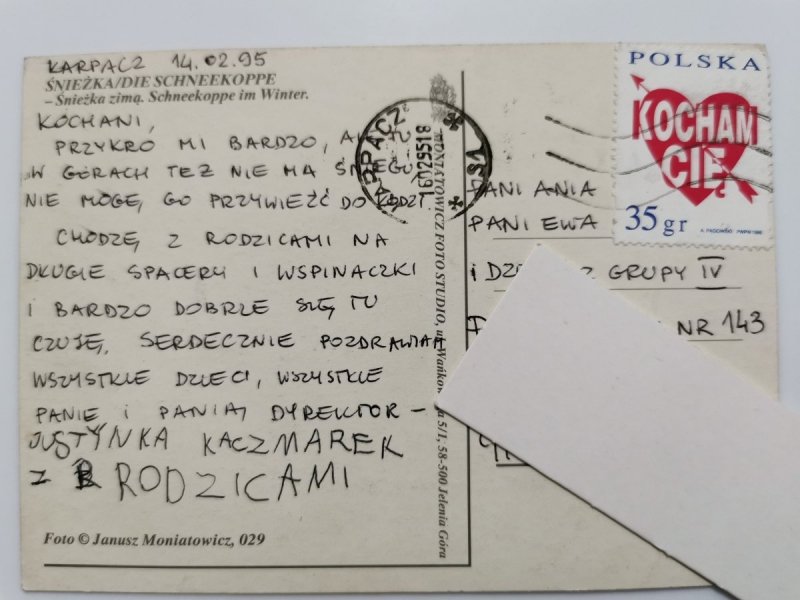 KARPACZ 14.02.95
ŚNIEŻKA/DIE SCHNEEKOPPE
– Śnieżka zimą. Schneekoppe im Winter.
KOCHANI,
PRZYKRO MI BARDZO, ALE TU
W GÓRACH TEŻ NIE MA ŚNIEGU
NIE MOGĘ GO PRZYWIEŹĆ DO ŁODZI.
CHODZĘ Z RODZICAMI NA
DŁUGIE SPACERY I WSPINACZKI
I BARDZO DOBRZE SIĘ TU
CZUJĘ, SERDECZNIE POZDRAWIAM
WSZYSTKIE DZIECI, WSZYSTKIE
PANIE I PANIĄ DYREKTOR –
JUSTYNKA KACZMAREK
Z RODZICAMI
Foto © Janusz Moniatowicz, 029
MONIATOWICZ FOTO STUDIO, 5/1, 58-500 Jelenia Góra
KARPACZ
16029518
POLSKA
KOCHAM
CIĘ
35 gr
PANI ANIA
PANI EWA
I Z GRUPY IV
NR 143